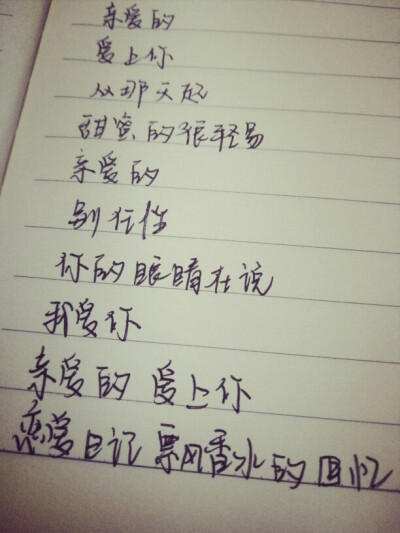 亲爱的
爱上你
从那天起
甜蜜的很轻易
亲爱的
别任性
你的眼睛在说
我爱你
亲爱的 爱上你
恋爱日记 飘香水的回忆